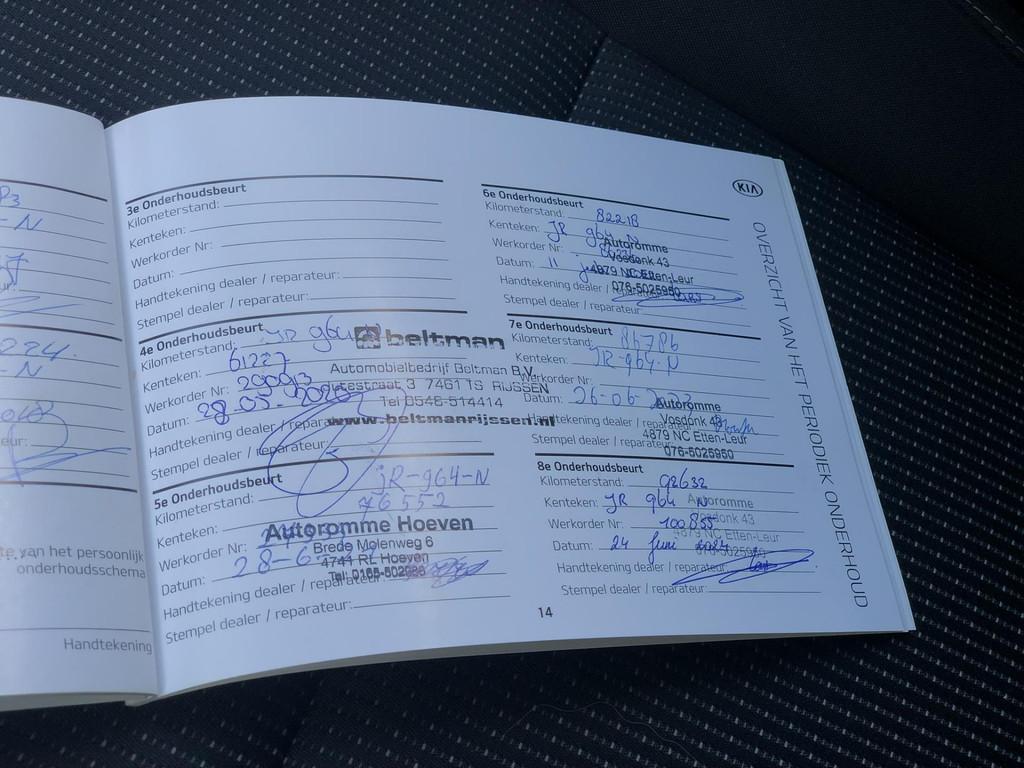 te van het persoonlijk
onderhoudsschema
Handtekening
3e Onderhoudsbeurt
Kilometerstand:
Kenteken:
Werkorder Nr:
Datum:
Handtekening dealer / reparateur:
Stempel dealer / reparateur:
4e Onderhoudsbeurt
Kilometerstand: JR 964
Kenteken: 61227
Werkorder Nr: 200913
Datum: 28-05-2020
Handtekening dealer / reparateur:
Stempel dealer / reparateur:
beltman
Automobielbedrijf Beltman B.V.
7461 TS RIJSSEN
Tel 0548-514414
www.beltmanrijssen.nl
5e Onderhoudsbeurt
JR-964-N
Kilometerstand: 76552
Kenteken:
Werkorder Nr:
Datum: 28-6-
Handtekening dealer / reparateur:
Stempel dealer / reparateur:
Autoromme Hoeven
Brede Molenweg 6
4741 RL Hoeven
Tel: 0165-502
KIA
6e Onderhoudsbeurt
Kilometerstand: 82218
Kenteken: JR 964 N
Werkorder Nr:
Datum: 11
Handtekening dealer / reparateur:
Stempel dealer / reparateur:
Autoromme
Vosdonk 43
4879 NC Etten-Leur
076-5025950
7e Onderhoudsbeurt
Kilometerstand: 86786
Kenteken: JR-964-N
Werkorder Nr:
Datum: 26-06-
Handtekening dealer / reparateur:
Stempel dealer / reparateur:
Autoromme
Vosdonk 43
4879 NC Etten-Leur
076-5025950
8e Onderhoudsbeurt
Kilometerstand: 92632
Kenteken: JR 964 N
Werkorder Nr: 100855
Datum: 24 Juni
Handtekening dealer / reparateur:
Stempel dealer / reparateur:
Autoromme
Vosdonk 43
4879 NC Etten-Leur
14
OVERZICHT VAN HET PERIODIEK ONDERHOUD